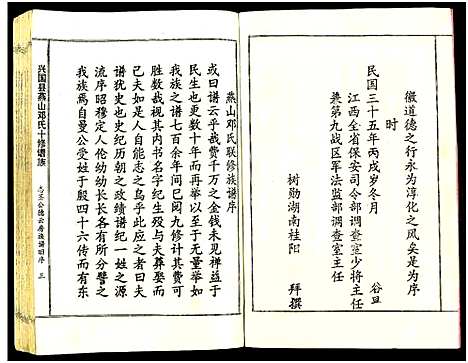 徽道德之行永为淳化之风矣是为序
时
民国三十五年丙戌岁冬月
谷旦
江西全省保安司令部调查室少将主任
兼第九战区军法监部调查室主任
树勋湖南桂阳
拜撰
燕山邓氏联修族谱序
或曰谱云谱云数十年而一修每修动
民生也更费数千而再万之金钱未见禅益于
我族之谱七百余年间已阅九修计其费可
胜数哉视其内书名字纪生殁与夫葬娶而
已夫如是人自能志之乌乎此应之者曰
谱犹史也史纪历朝之政绩谱纪一姓之源
流序昭穆定人伦幼幼长长各有所分譬之
我族焉自曼公受姓于殷四十六传而有东
兴国县燕山邓氏十修谱族
三